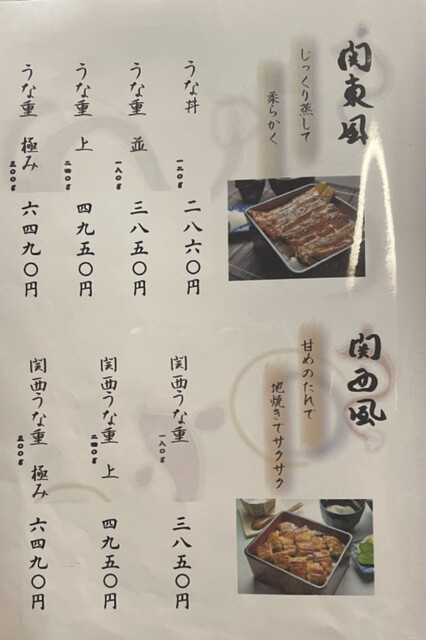 関東風
じっくり蒸して
柔らかく
うな丼 一二〇g 二八六〇円
うな重 並 一八〇g 三八五〇円
うな重 上 二四〇g 四九五〇円
うな重 極み 三〇〇g 六四九〇円
関西風
甘めのたれで
地焼きでサクサク
関西うな重 一八〇g 三八五〇円
関西うな重 上 二四〇g 四九五〇円
関西うな重 極み 三〇〇g 六四九〇円